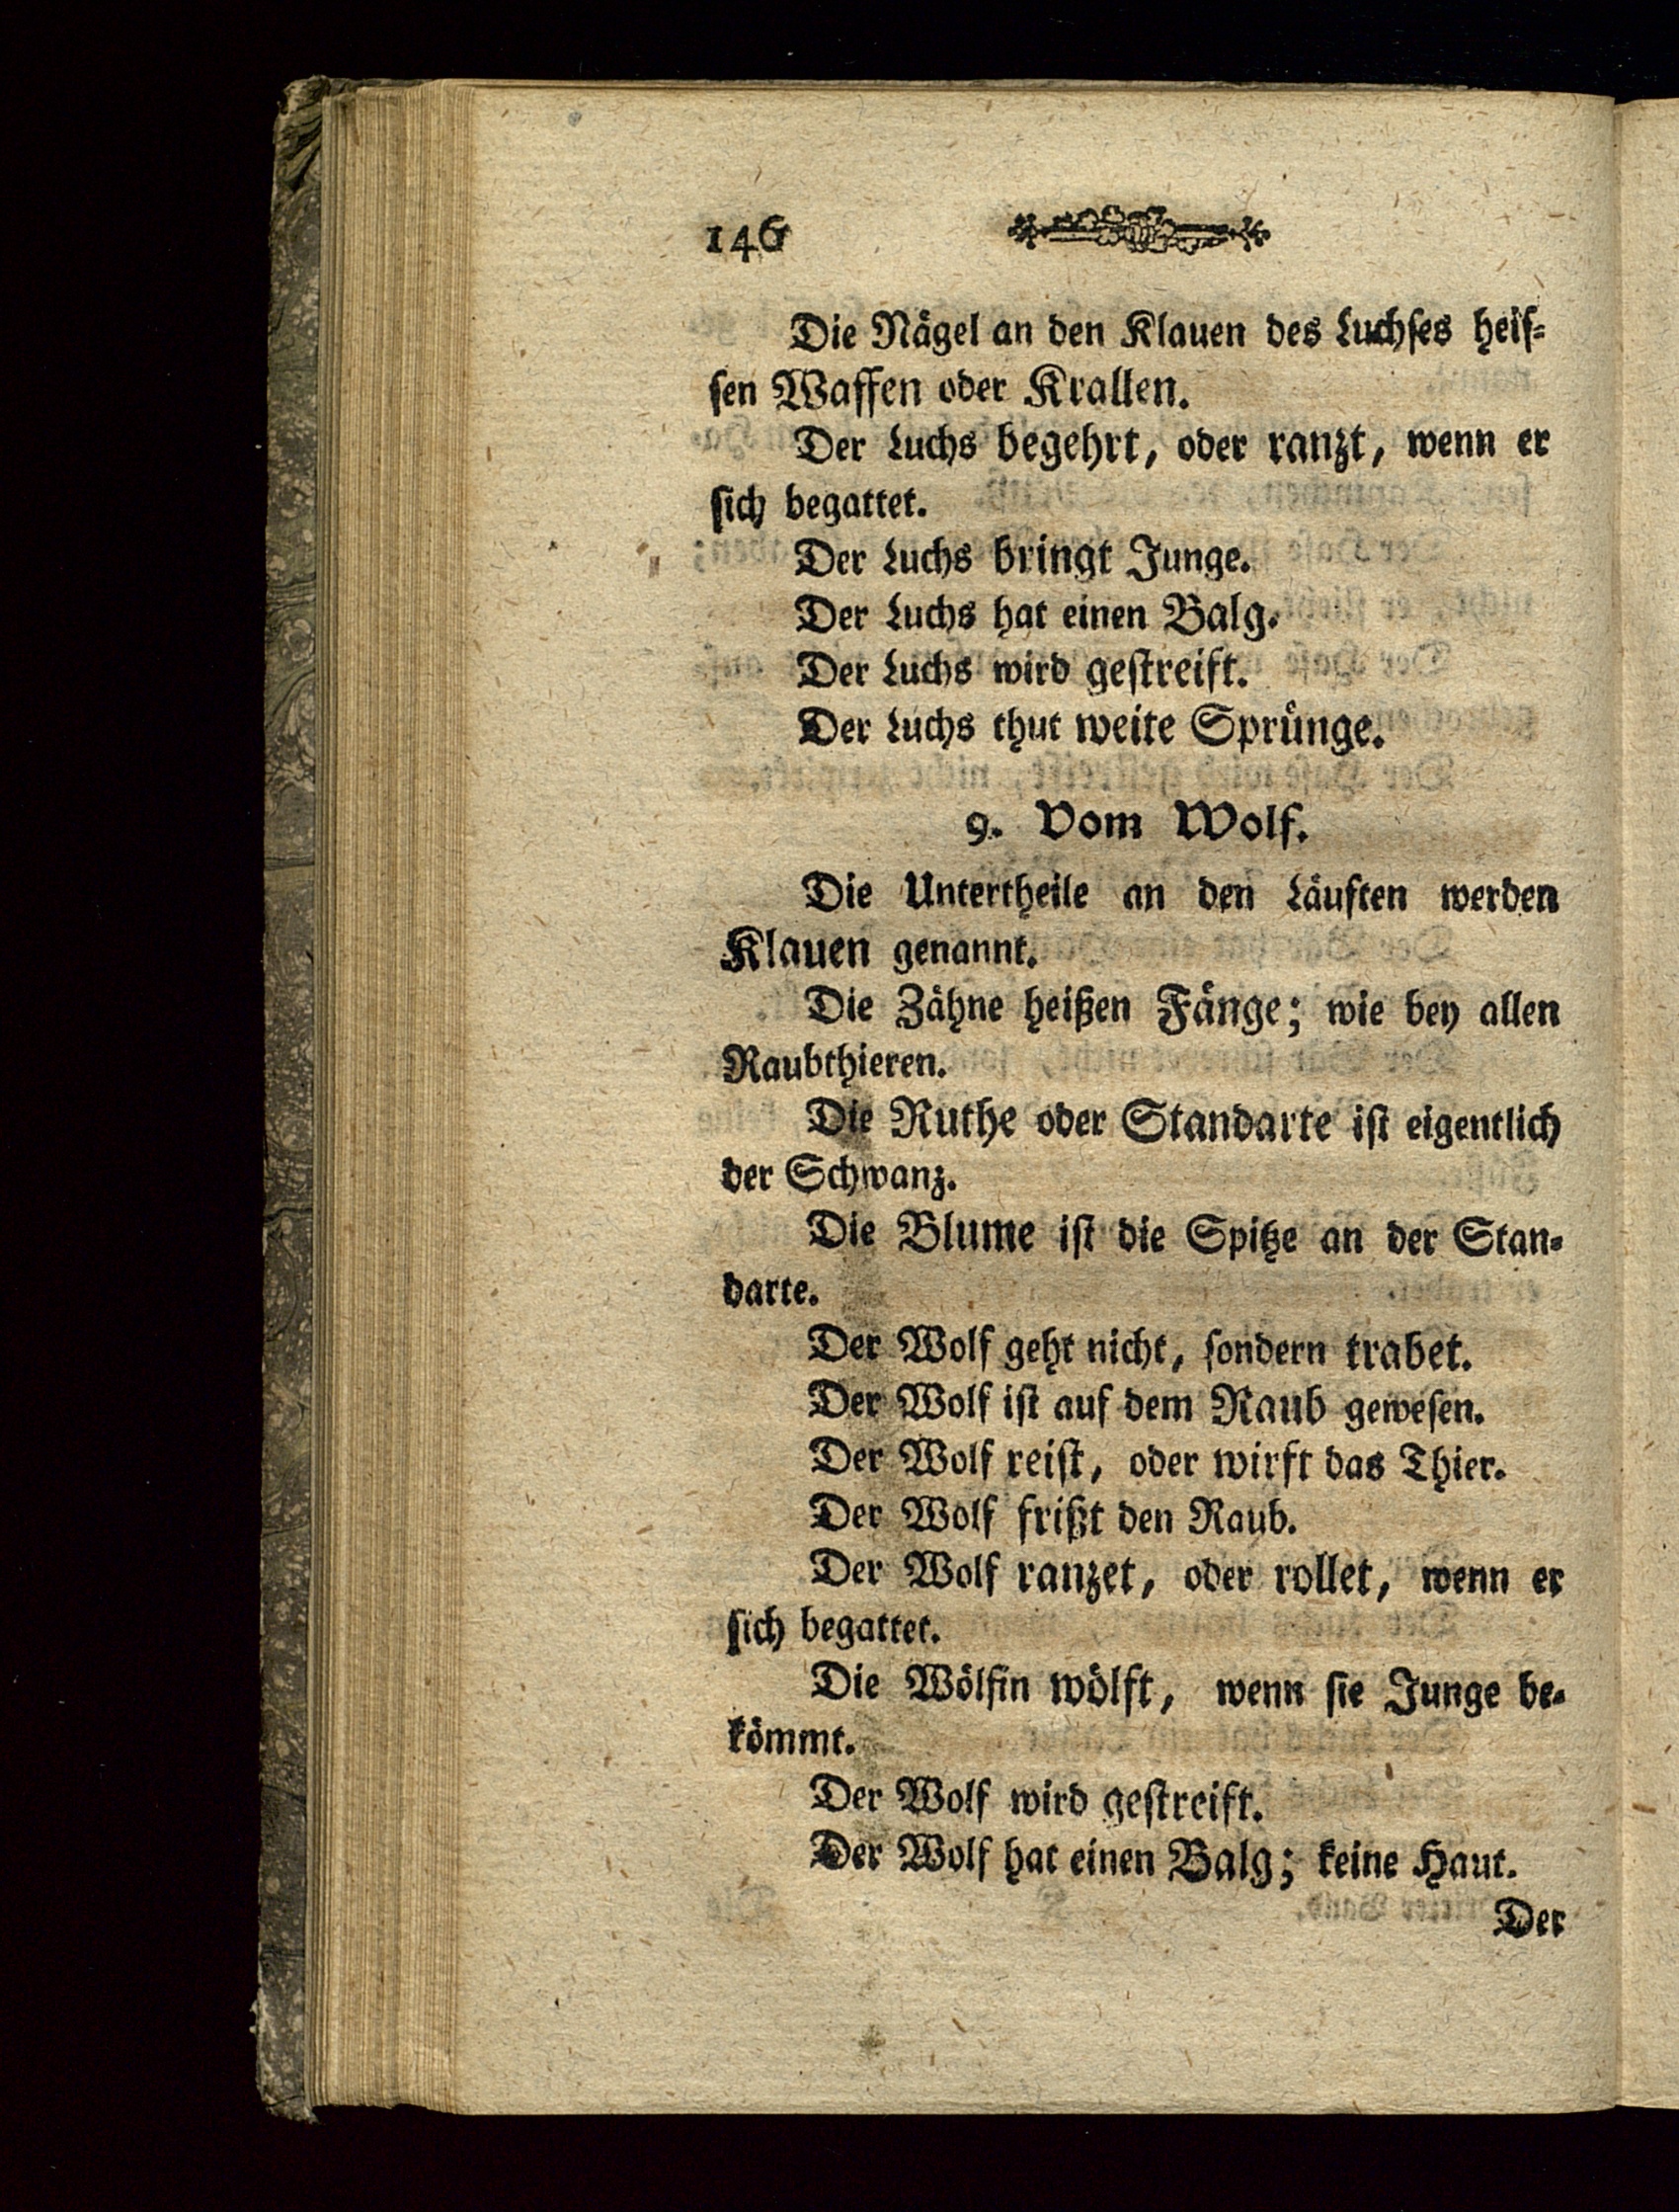 146
Die Nägel an den Klauen des Luchſes heiſ⸗
ſen Waffen oder Krallen.
Der Luchs begehrt, oder ranzt, wenn er
ſich begattet.
Der Luchs bringt Junge.
Der Luchs hat einen Balg.
Der Luchs wird geſtreift.
Der Luchs thut weite Sprünge.
9. Vom Wolf.
Die Untertheile an den Läuften werden
Klauen genannt.
Die Zähne heißen Fänge; wie bey allen
Raubthieren.
Die Ruthe oder Standarte iſt eigentlich
der Schwanz.
Die Blume iſt die Spitze an der Stan⸗
darte.
Der Wolf geht nicht, ſondern trabet.
Der Wolf iſt auf dem Raub geweſen.
Der Wolf reiſt, oder wirft das Thier.
Der Wolf frißt den Raub.
Der Wolf ranzet, oder rollet, wenn er
ſich begattet.
Die Wölfin wölft, wenn ſie Junge be⸗
kömmt.
Der Wolf wird geſtreift.
Der Wolf hat einen Balg; keine Haut.
Der